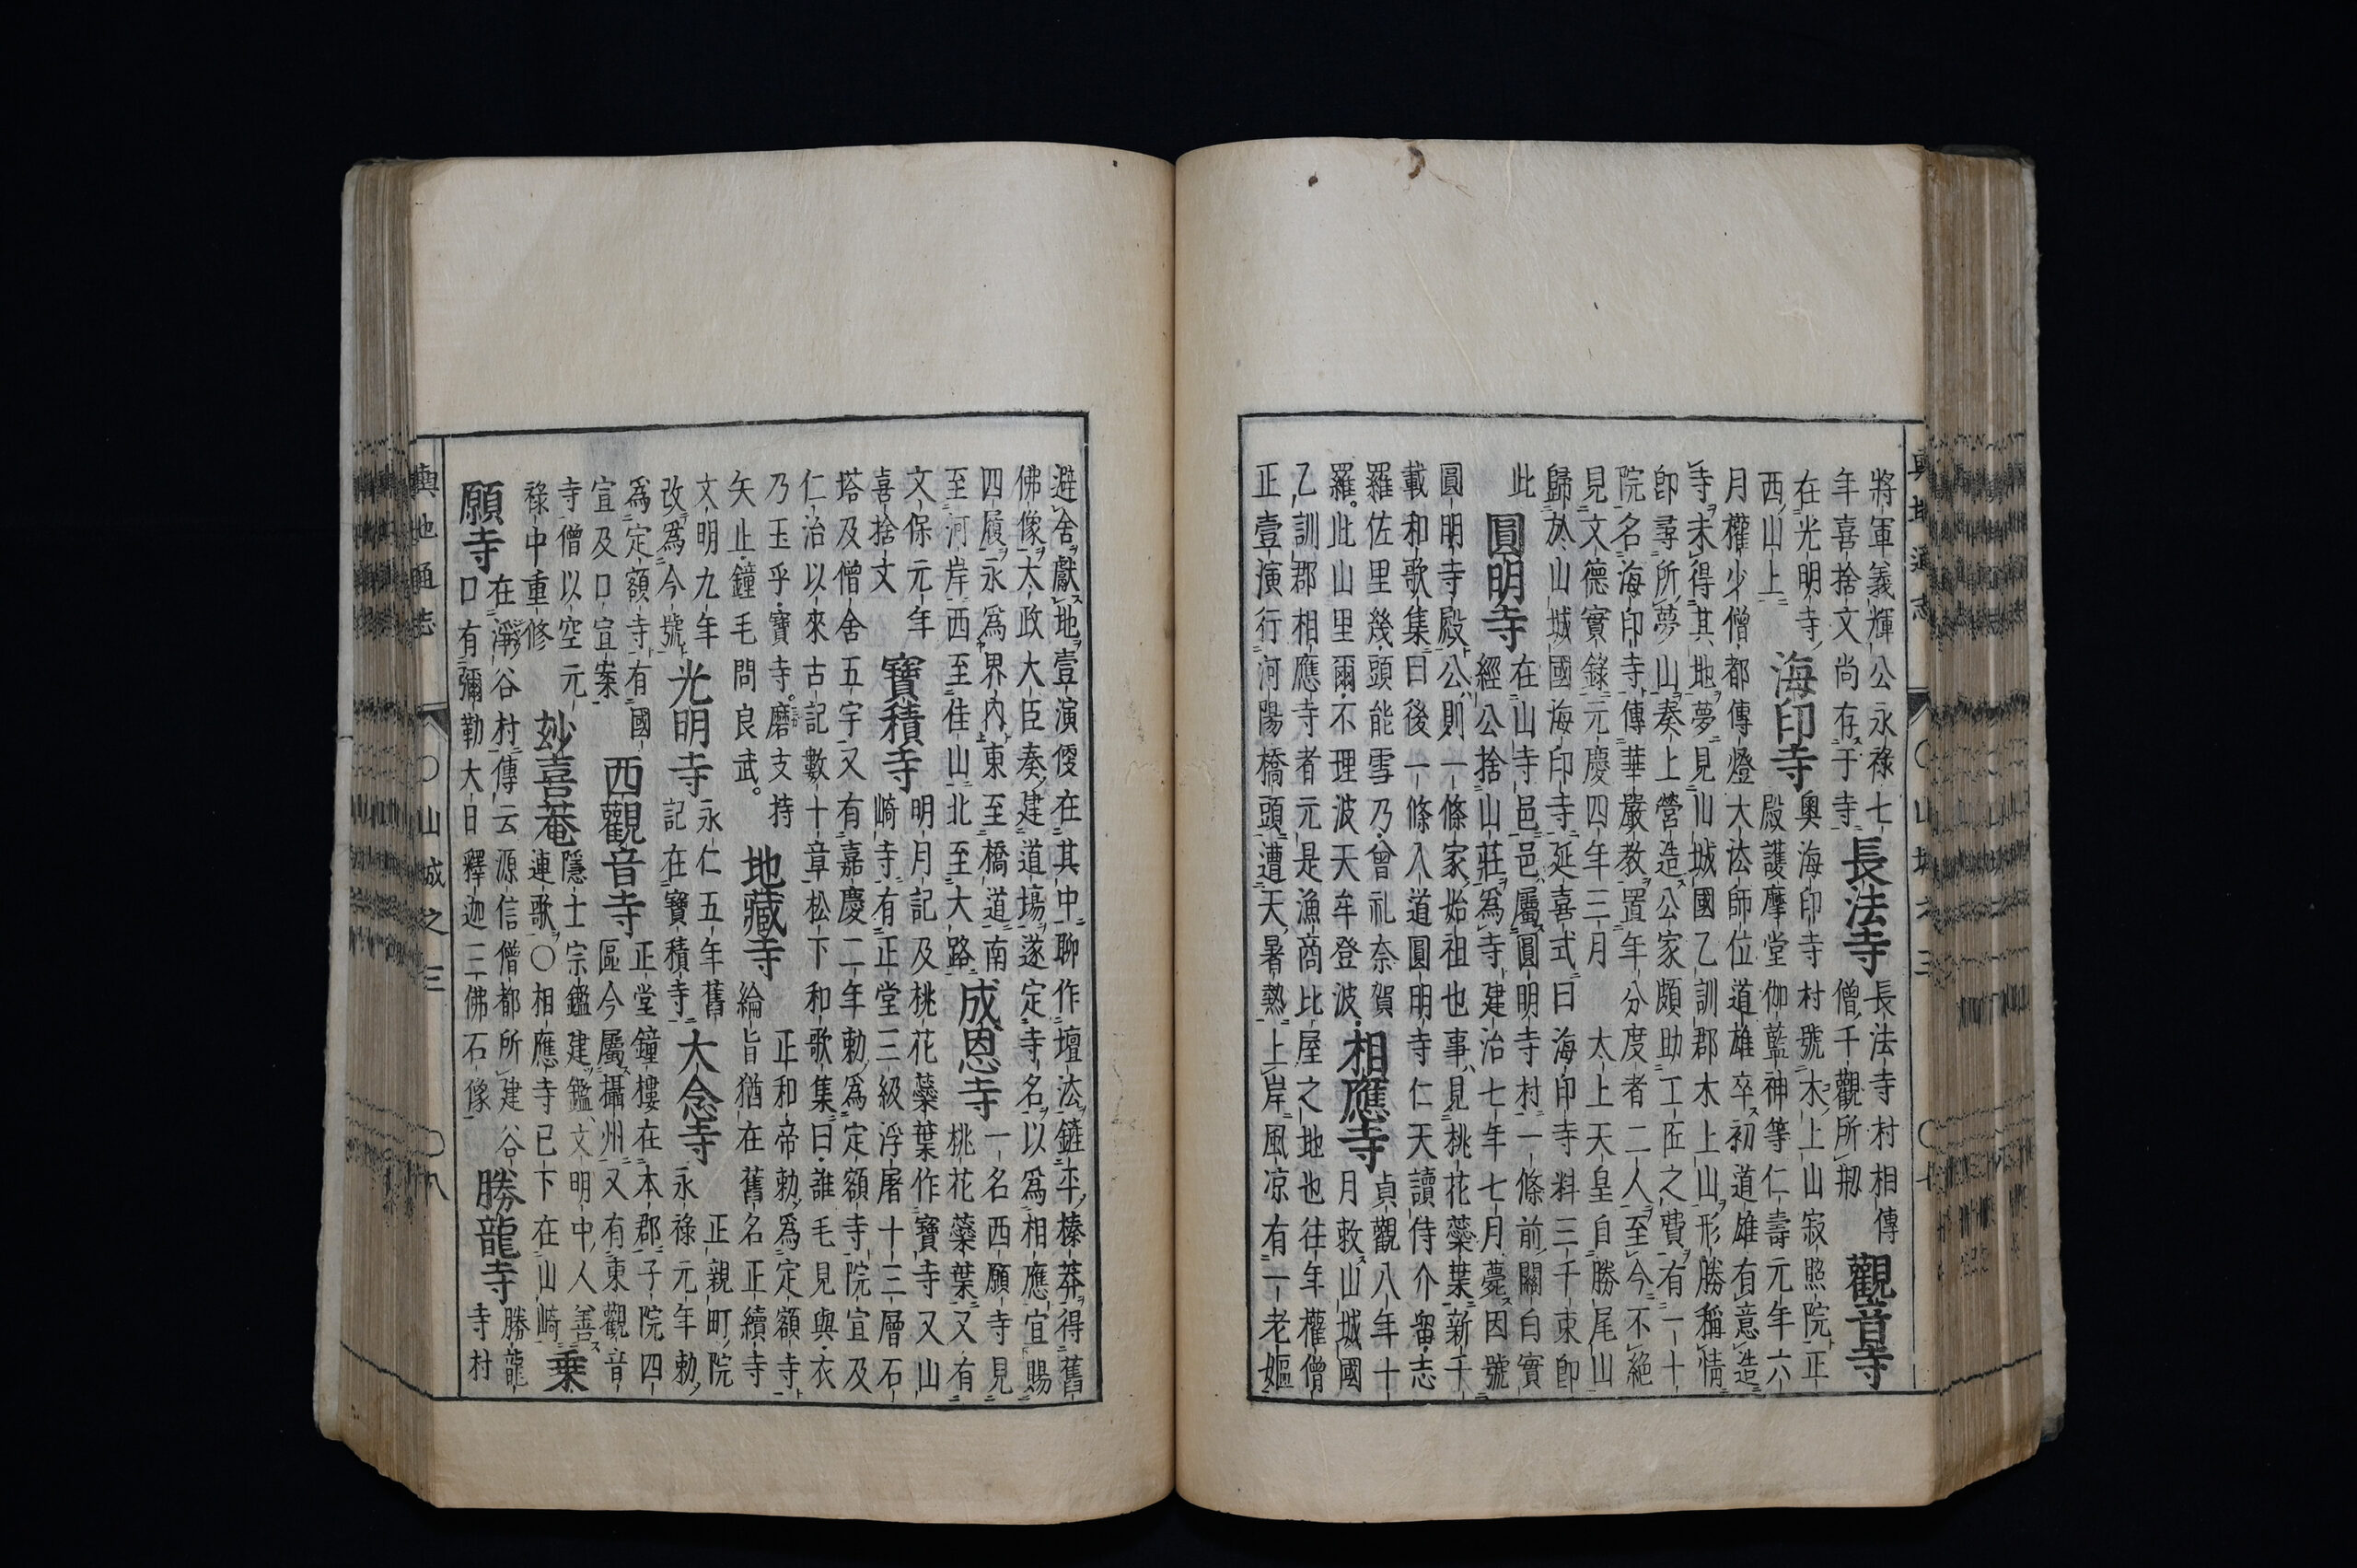 將軍義輝公永祿七
年喜捨文尚存于寺
長法寺
長法寺村相傳
僧千觀所剏
觀音寺
在光明寺
西山上
海印寺
奧海印寺村號木上山寂照院正
殿護摩堂伽藍神等仁壽元年六
月權少僧都傳燈大法師位道雄卒初道雄有意造
寺未得其地夢見山城國乙訓郡木上山形勝稱情
卽尋所夢山奏上營造公家頗助工匠之費有一十
院名海印寺傳華嚴教置年分度者二人至今不絕
見文德實錄元慶四年三月
太上天皇自勝尾山
歸於山城國海印寺延喜式曰
海印寺料三千束卽
此
圓明寺
在山寺邑邑屬圓明寺村一條前關白實
經公捨山莊爲寺建治七年七月薨因號
圓明寺殿公則一條家始祖也事見桃花蘂葉新千
載和歌集曰後一條入道圓明寺仁天讀侍介留志
羅佐里幾頭能雪乃曾礼奈賀
羅此山里爾不理波天牟登波
相應寺
貞觀八年十
月敕山城國
乙訓郡相應寺者元是漁商比屋之地也往年權僧
正壹演行河陽橋頭遭天暑熱上岸風涼有一老嫗
避舍獻地壹演傻在其中聊作壇法鏟平榛莽得舊
佛像太政大臣奏建道場遂定寺名以爲相應宜賜
四履永爲界內東至橋道南
至河岸西至佳山北至大路
成恩寺
一名西願寺見
桃花蘂葉又有
文保元年
喜捨文
寶積寺
明月記及桃花蘂葉作寶寺又山
崎寺有正堂三級浮屠十三層石
塔及僧舍五宇又有嘉慶二年勅爲定額寺院宜及
仁治以來古記數十章松下和歌集曰誰毛見與衣
乃玉乎寶寺磨支持
矢止鐘毛問良武
地藏寺
正和帝勅爲定額寺
綸旨猶在舊名正續寺
文明九年
改爲今號
光明寺
永仁五年舊
記在寶積寺
大念寺
正親町院
永祿元年勅
爲定額寺有國
宜及口宣案
西觀音寺
正堂鐘樓在本郡子院四
區今屬攝州又有東觀音
寺僧以空元
祿中重修
妙喜菴
隱士宗鑑建鑑文明中人善
連歌〇相應寺已下在山崎
乗
願寺
在淨谷村傳云源信僧都所建谷
口有彌勒大日釋迦三佛石像
勝龍寺
勝龍
寺村
輿地通志
〇山城之三
〇八